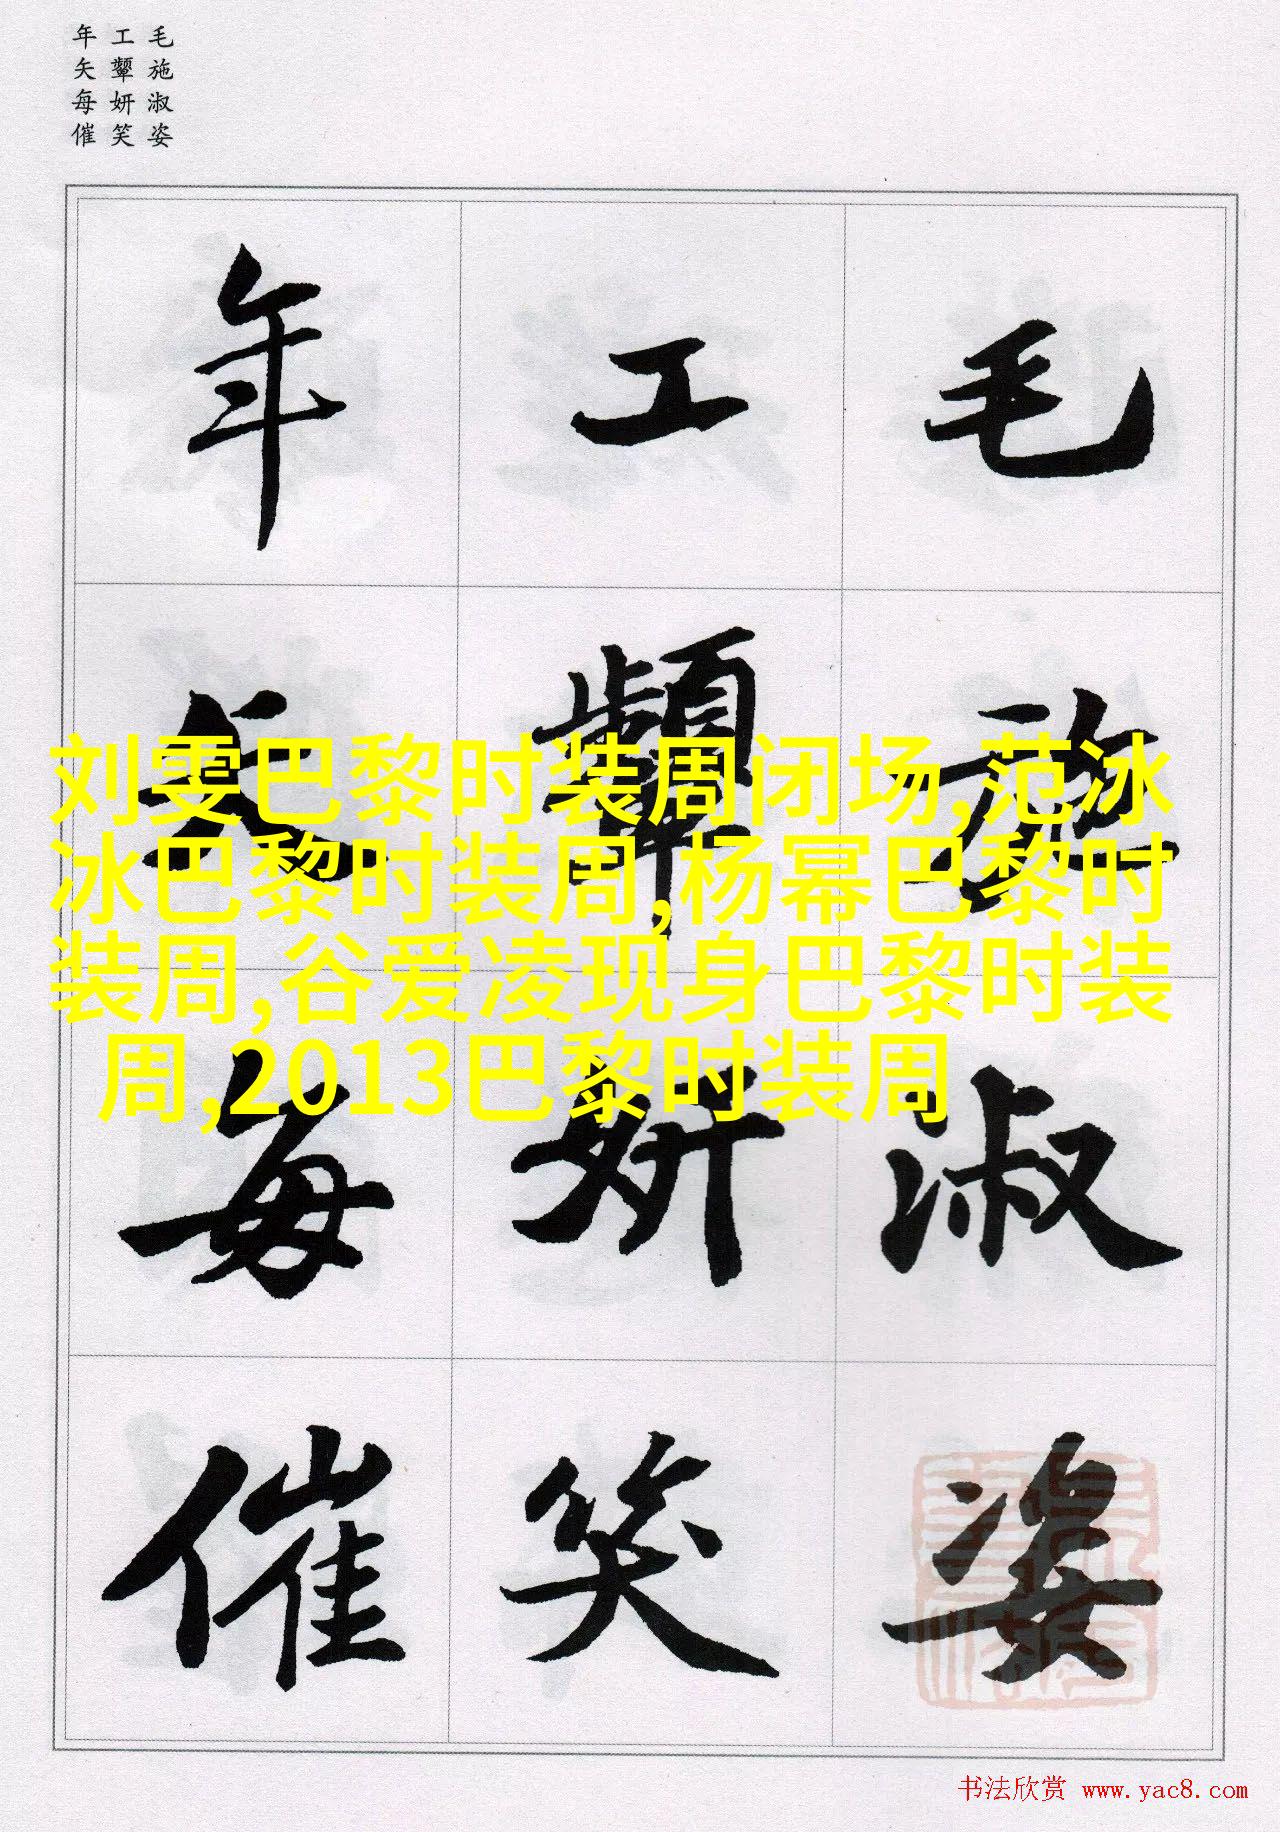 毛施淑姿
工颦妍笑
年矢每催
毛施淑姿
工颦妍笑
年矢每催
刘雯巴黎时装周闭场,范冰
冰巴黎时装周,杨幂巴黎时
装周,谷爱凌现身巴黎时装
周,2013巴黎时装周
书法欣赏 www.yac8.com